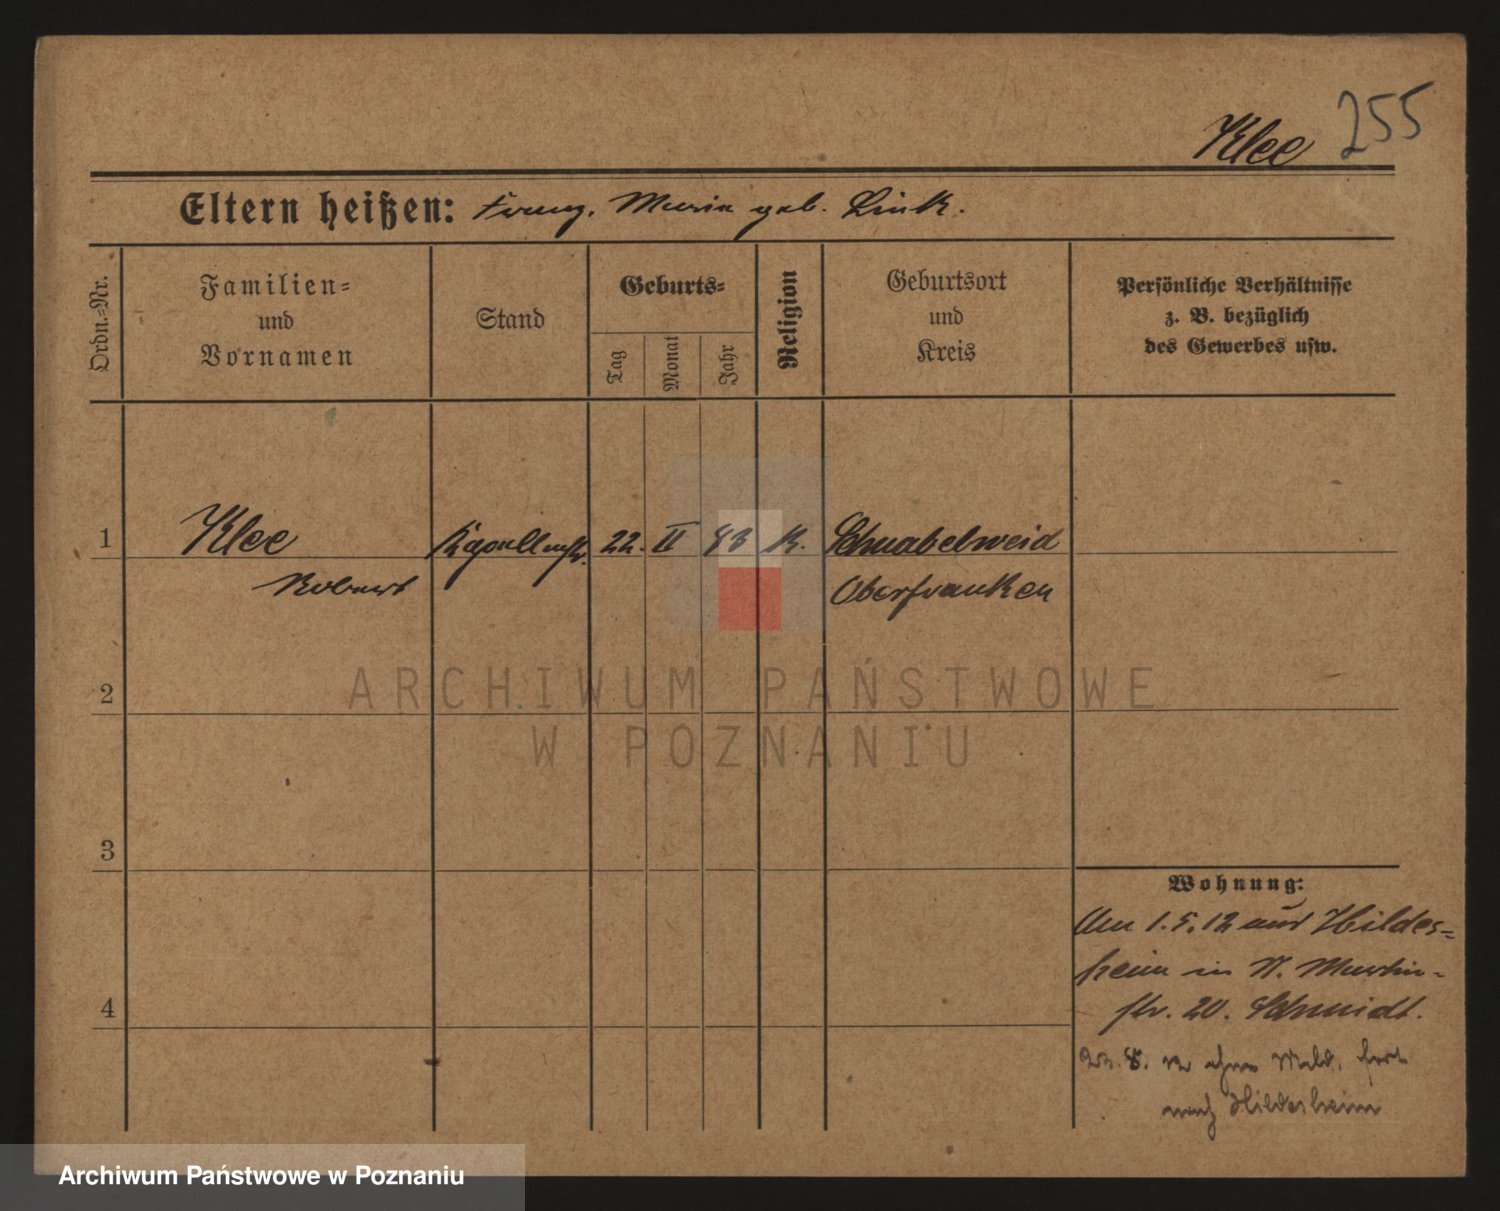 Klee 255
Eltern heißen: Franz, Maria geb. Link.
Ordn.-Nr.
Familien-
und
Vornamen
Stand
Geburts-
Tag
Monat
Jahr
Religion
Geburtsort
und
Kreis
Persönliche Verhältnisse
z. B. bezüglich
des Gewerbes usw.
1 Klee Kapellmstr. 22. II 83 K. Schnabelweid
Robert Oberfranken
2
3
4
Wohnung:
Am 1.5.12 aus Hildes-
heim in N. Martin-
str. 20. Schmidt.
23. 8. 12 ohne Meld. fort
nach Hildesheim
ARCHIWUM PAŃSTWOWE
W POZNANIU
Archiwum Państwowe w Poznaniu